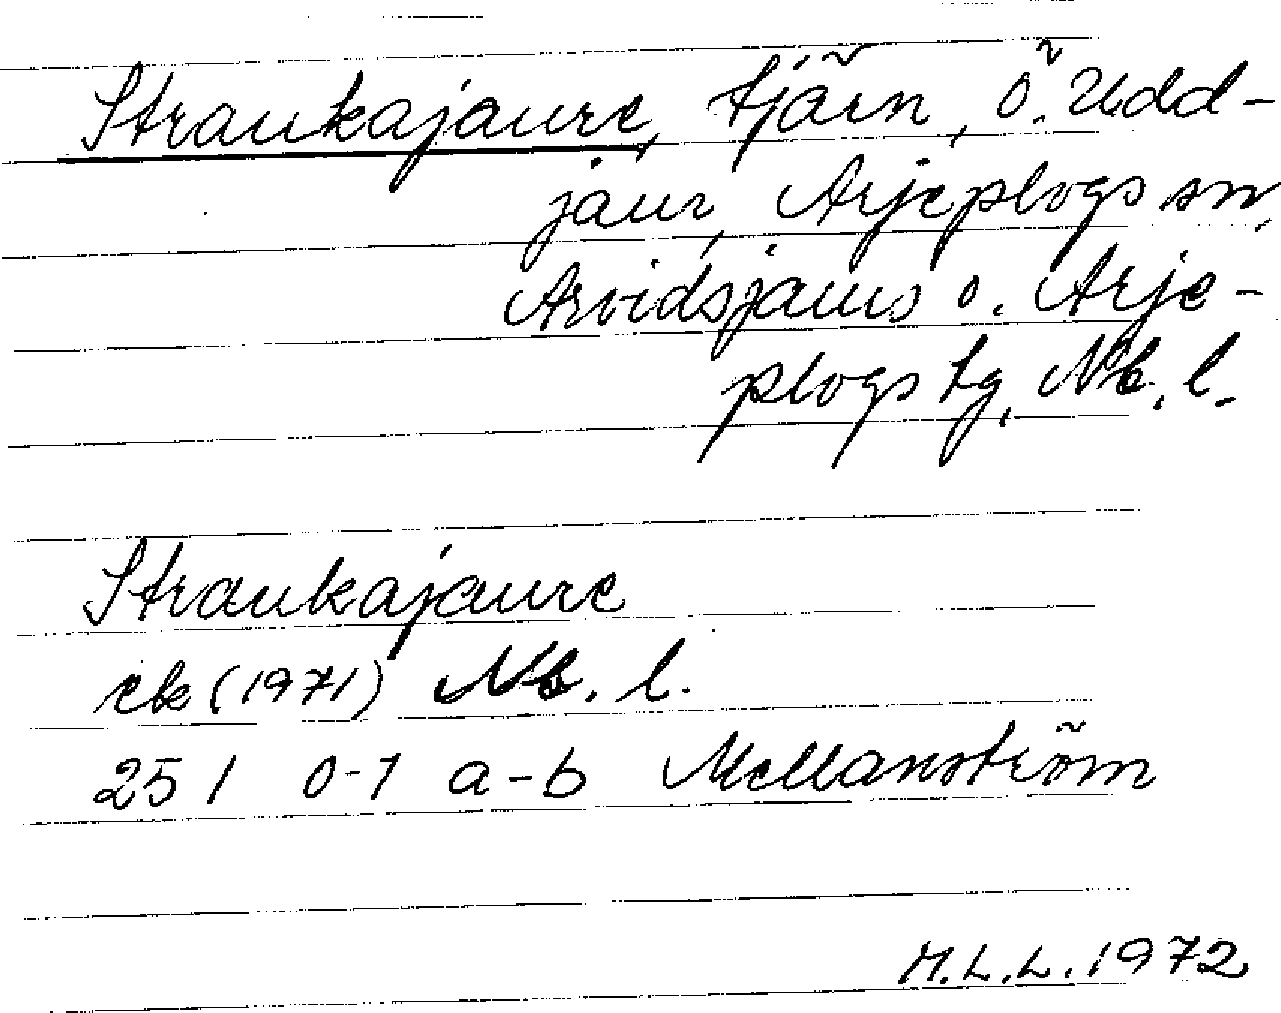 Straukajaure, tjärn, ö. Udd-
jaur, Arjeplogs sn,
Arvidsjaurs o. Arje-
plogs tg, Nb. l.
Straukajaure
ek (1971) Nb. l.
25 I 0-1 a-b Mellanström
M.L.L. 1972